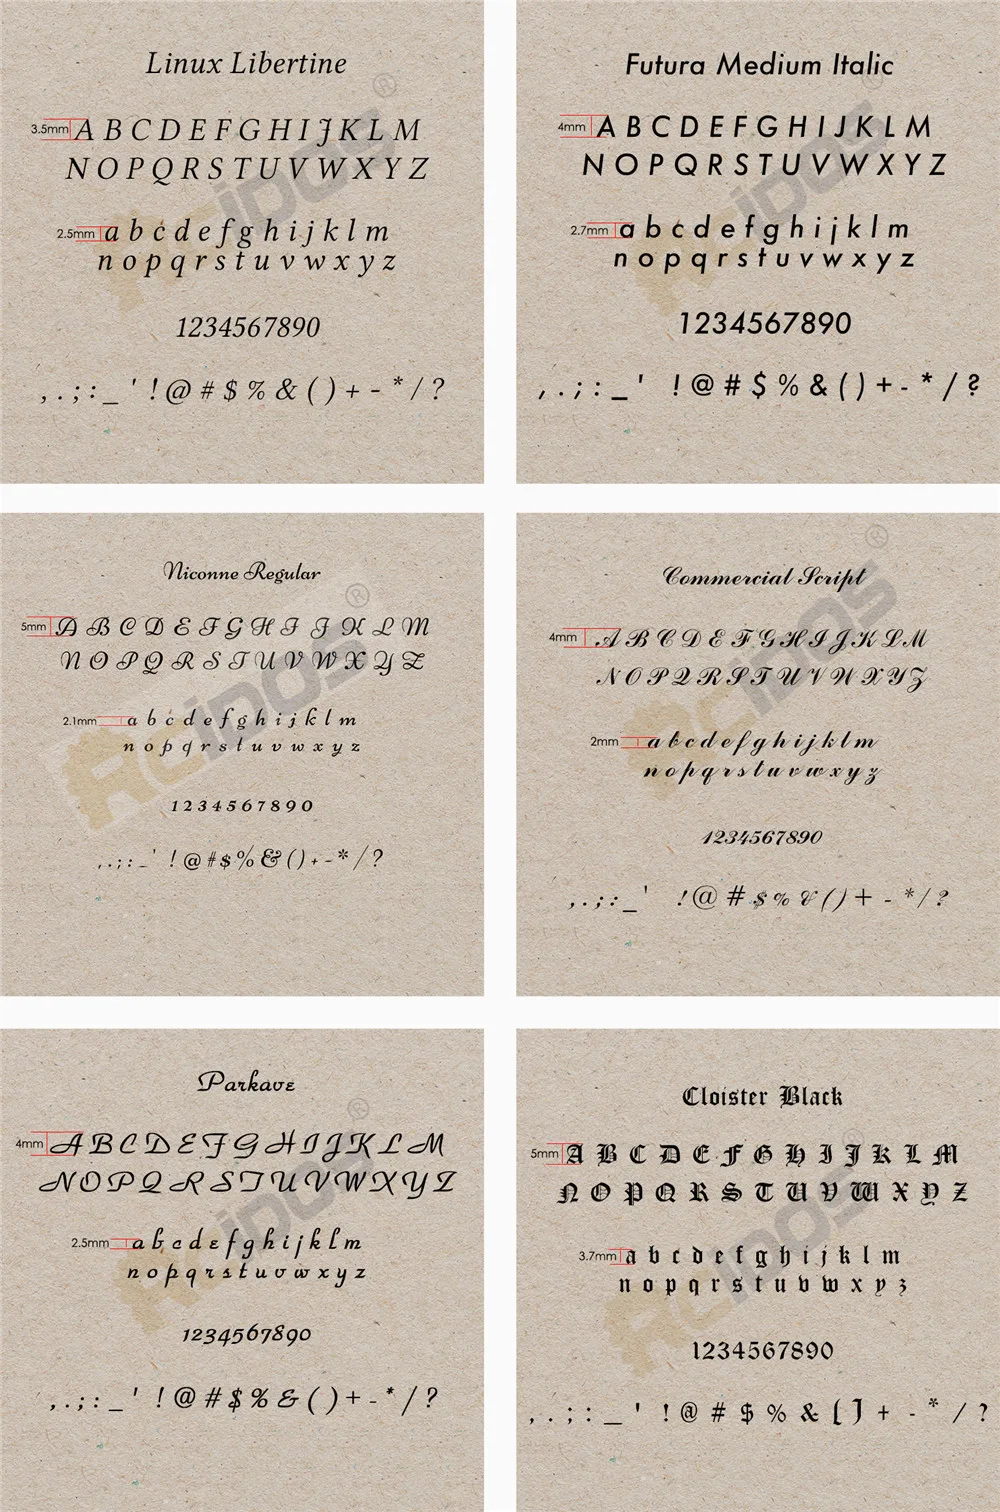 Linux Libertine
3.5mm A B C D E F G H I J K L M
N O P Q R S T U V W X Y Z
2.5mm a b c d e f g h i j k l m
n o p q r s t u v w x y z
1234567890
, . ; : _ ' ! @ # $ % & ( ) + - * / ?
RCIDOS®
Futura Medium Italic
4mm A B C D E F G H I J K L M
N O P Q R S T U V W X Y Z
2.7mm a b c d e f g h i j k l m
n o p q r s t u v w x y z
1234567890
, . ; : _ ' ! @ # $ % & ( ) + - * / ?
RCIDOS
Niconne Regular
5mm A B C D E F G H I J K L M
N O P Q R S T U V W X Y Z
2.1mm a b c d e f g h i j k l m
n o p q r s t u v w x y z
1 2 3 4 5 6 7 8 9 0
, . ; : _ ' ! @ # $ % & ( ) + - * / ?
RCIDOS®
Commercial Script
4mm A B C D E F G H I J K L M
N O P Q R S T U V W X Y Z
2mm a b c d e f g h i j k l m
n o p q r s t u v w x y z
1234567890
, . ; : _ ' ! @ # $ % & ( ) + - * / ?
RCIDOS®
Parkave
4mm A B C D E F G H I J K L M
N O P Q R S T U V W X Y Z
2.5mm a b c d e f g h i j k l m
n o p q r s t u v w x y z
1234567890
, . ; : _ ' ! @ # $ % & ( ) + - * / ?
RCIDOS®
Cloister Black
5mm A B C D E F G H I J K L M
N O P Q R S T U V W X Y Z
3.7mm a b c d e f g h i j k l m
n o p q r s t u v w x y z
1234567890
, . ; : _ ' ! @ # $ % & ( ) + - * / ?
RCIDOS